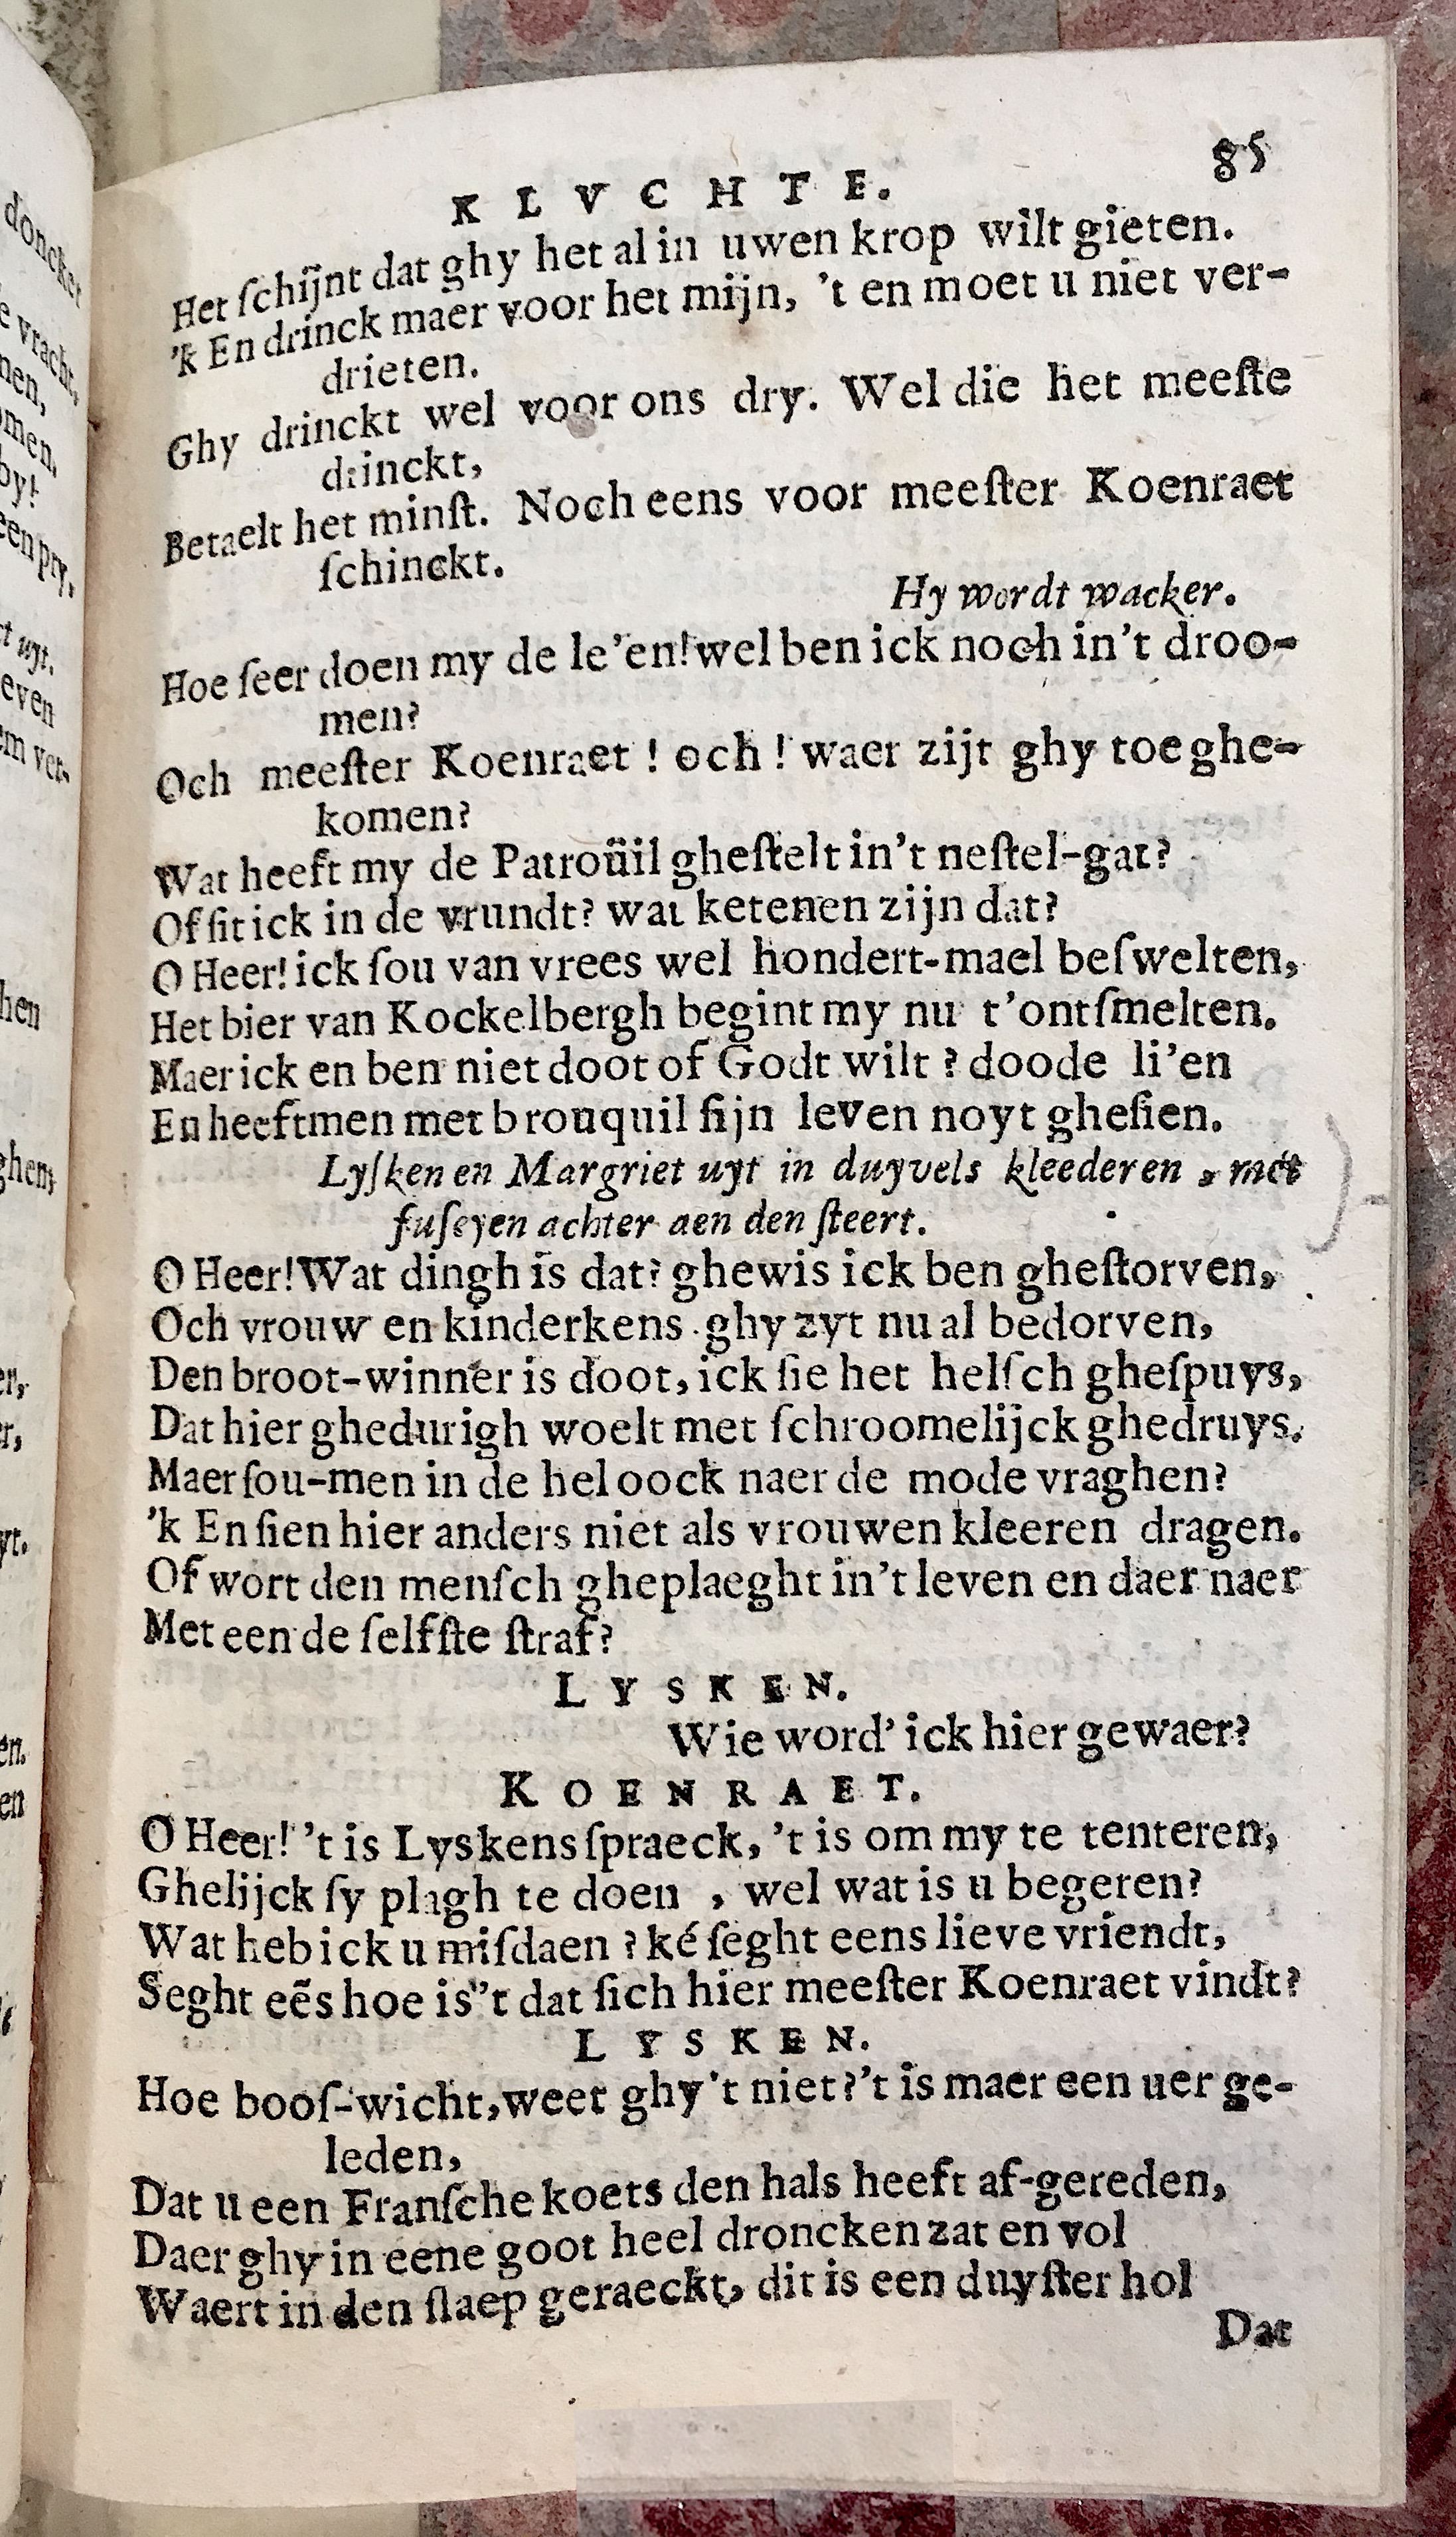 doncker
vracht,
nen,
omen,
by!
een pry,
uyt.
even
em ver-
hen
ghen,
er,
r,
yt.
en.
en
85
KLVCHTE.
Het ſchijnt dat ghy het al in uwen krop wilt gieten.
'k En drinck maer voor het mijn, 't en moet u niet ver-
drieten.
Ghy drinckt wel voor ons dry. Wel die het meeſte
drinckt,
Betaelt het minſt. Noch eens voor meeſter Koenraet
ſchinckt.
Hy wordt wacker.
Hoe ſeer doen my de le'en! wel ben ick noch in't droo-
men?
Och meeſter Koenraet ! och ! waer zijt ghy toe ghe-
komen?
Wat heeft my de Patroüil gheſtelt in't neſtel-gat?
Of ſit ick in de vrundt? wat ketenen zijn dat?
O Heer! ick ſou van vrees wel hondert-mael beſwelten,
Het bier van Kockelbergh begint my nu t'ontſmelten.
Maer ick en ben niet doot of Godt wilt ? doode li'en
En heeftmen met brouquil ſijn leven noyt gheſien.
Lyſken en Margriet uyt in duyvels kleederen , met
fuſeyen achter aen den ſteert.
O Heer! Wat dingh is dat? ghewis ick ben gheſtorven,
Och vrouw en kinderkens ghy zyt nu al bedorven,
Den broot-winner is doot, ick ſie het helſch gheſpuys,
Dat hier ghedurigh woelt met ſchroomelijck ghedruys.
Maer ſou-men in de hel oock naer de mode vraghen?
'k En ſien hier anders niet als vrouwen kleeren dragen.
Of wort den menſch gheplaeght in't leven en daer naer
Met een de ſelfſte ſtraf?
LYSKEN.
Wie word' ick hier gewaer?
KOENRAET.
O Heer! 't is Lyskens ſpraeck, 't is om my te tenteren,
Ghelijck ſy plagh te doen , wel wat is u begeren?
Wat heb ick u miſdaen ? ké ſeght eens lieve vriendt,
Seght eẽs hoe is''t dat ſich hier meeſter Koenraet vindt?
LYSKEN.
Hoe booſ-wicht, weet ghy 't niet? 't is maer een uer ge-
leden,
Dat u een Franſche koets den hals heeft af-gereden,
Daer ghy in eene goot heel droncken zat en vol
Waert in den ſlaep geraeckt, dit is een duyſter hol
Dat